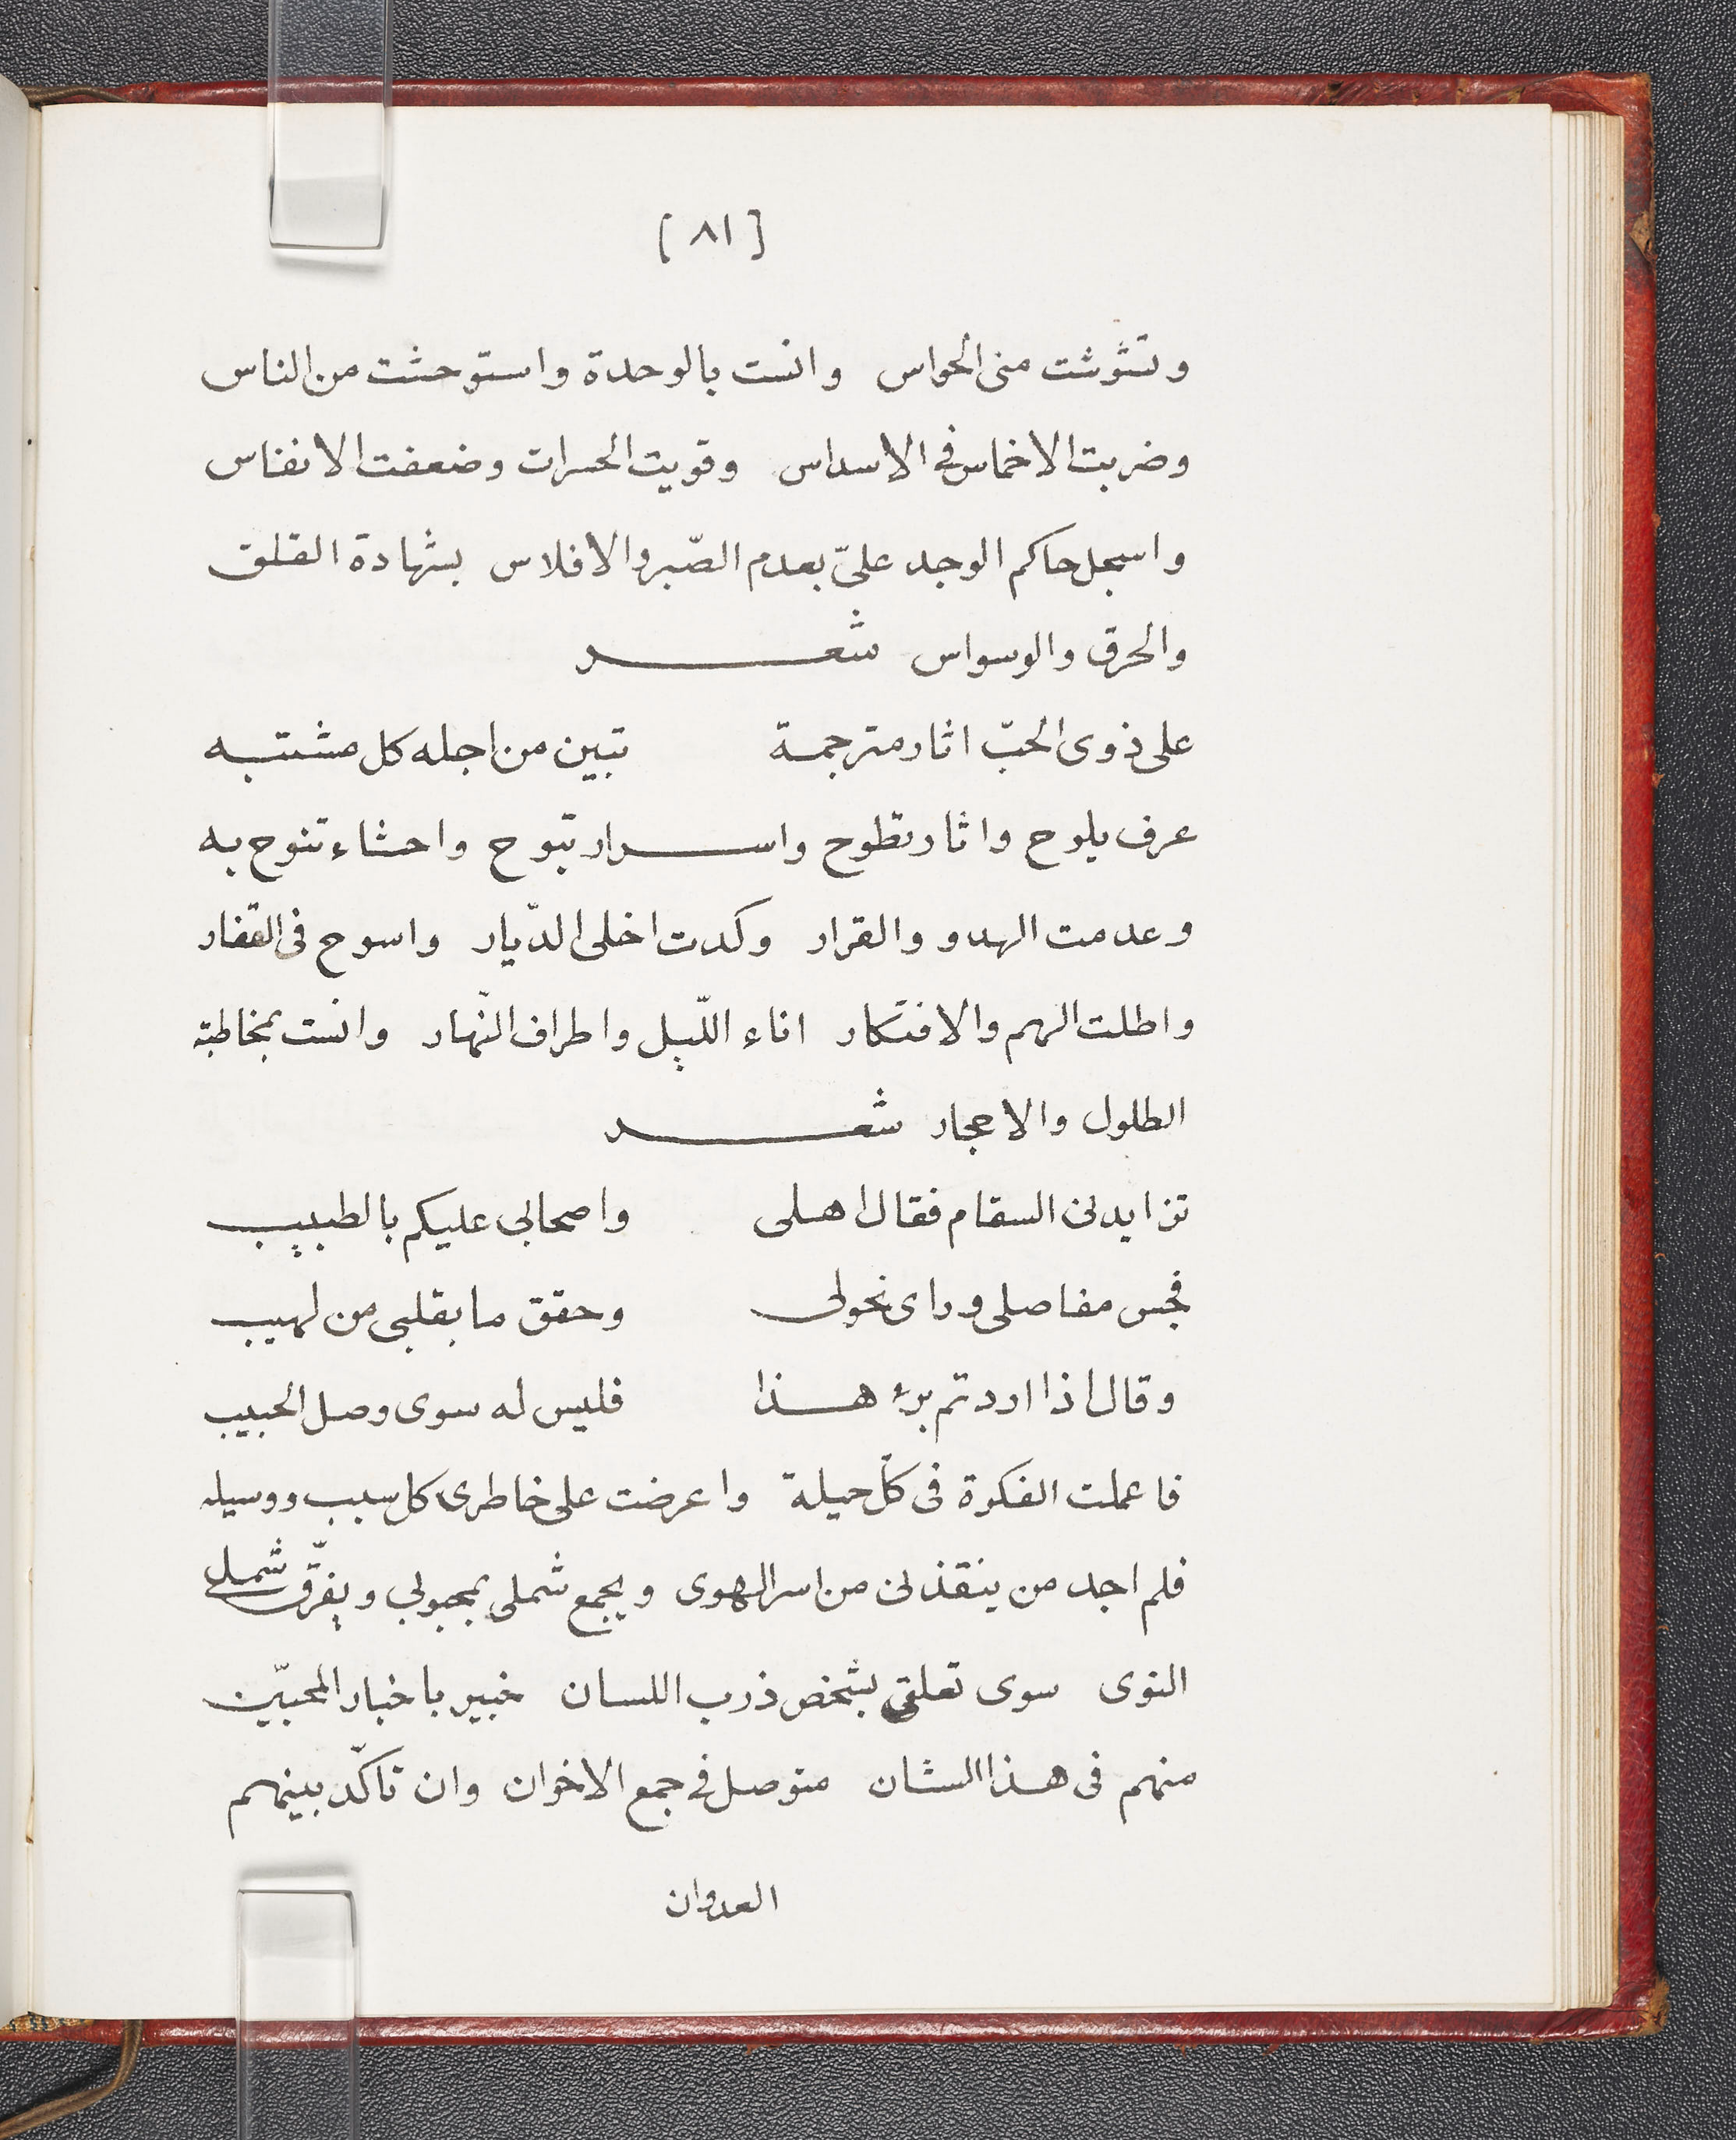 [ ٨١ ]
وتشوشت منى الحواس وانست بالوحدة واستوحشت من الناس
وضربت الاخماس في الاسداس وقويت الحسرات وضعفت الانفاس
واسجل حاكم الوجد علىّ بعدم الصّبر والافلاس بشهادة القلق
والحرق والوسواس شعـــر
على ذوى الحبّ اثار مترجمة تبين من اجله كل مشتبه
عرف يلوح واثار تطوح واسرار تبوح واحشاء تنوح به
وعدمت الهدو والقرار وكدت اخلى الدّيار واسوح فى القفار
واطلت الهم والافتكار اناء اللّيل واطراف النّهار وانست بمخاطبة
الطلول والاحجار شعـــر
تزايد لى السقام فقال اهلى واصحابى عليكم بالطبيب
فجس مفاصلى وراى نحولى وحقق ما بقلبى من لهيب
وقال اذا اردتم برء هذا فليس له سوى وصل الحبيب
فاعملت الفكرة فى كلّ حيلة واعرضت على خاطرى كل سبب ووسيله
فلم اجد من ينقذنى من اسر الهوى ويجمع شملى بمحبوبى ويفرّق شمل
النوى سوى تعلقى بشخص ذرب اللسان خبير باخبار المحبّين
منهم فى هذا الشان متوصل في جمع الاخوان وان تاكّد بينهم
العدوان